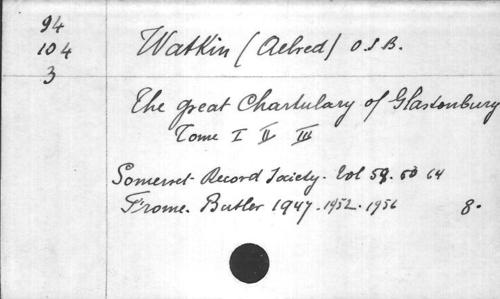 94
104
3
Watkin (Aelred) O.S.B.
The great Chartulary of Glastonbury
Tome I II III
Somerset Record Society. Vol 59. 63 64
Frome. Butler 1947. 1952. 1956 8.